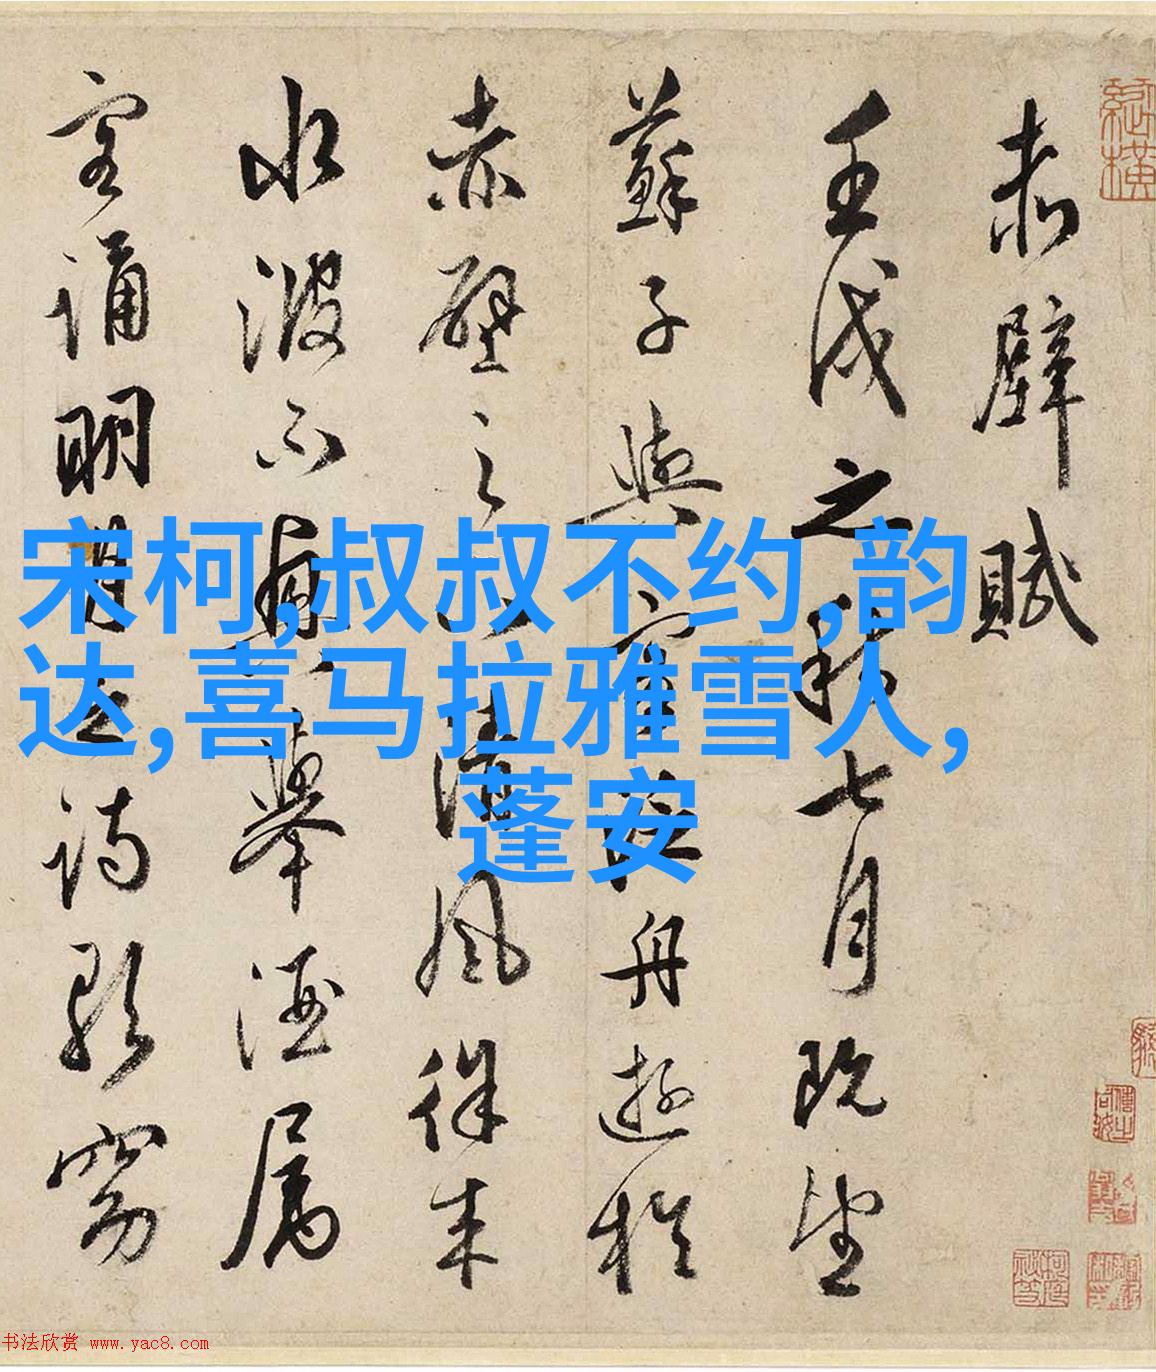 赤壁賦
壬戌之秋七月既望
蘇子與客泛舟遊於
赤壁之下清風徐来
水波不興舉酒属
客誦明月之詩歌窈
宋柯,叔叔不约,韵
达,喜马拉雅雪人,
蓬安
书法欣赏 www.yac8.com